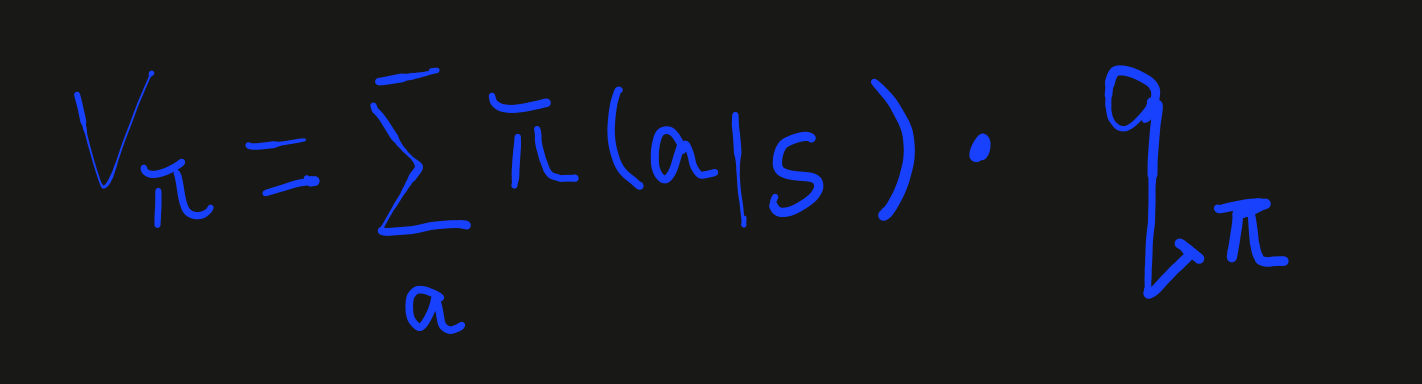 V_π = Σ_a π(a|s) · q_π